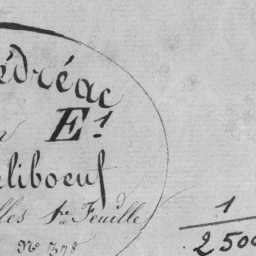 édréac
E¹
eliboeuf
lles 1re Feuille
1
250